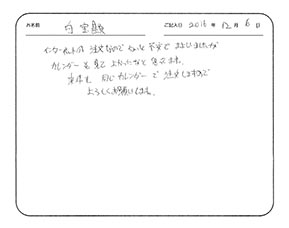 お名前 白宝殿 ご記入日 2016年 12月 6日
インターネットの注文なので ちょっと不安で まよいましたが
カレンダーを見て よかったなと 思ってます。
来年も 同じカレンダーで 注文しますので
よろしくお願いします。